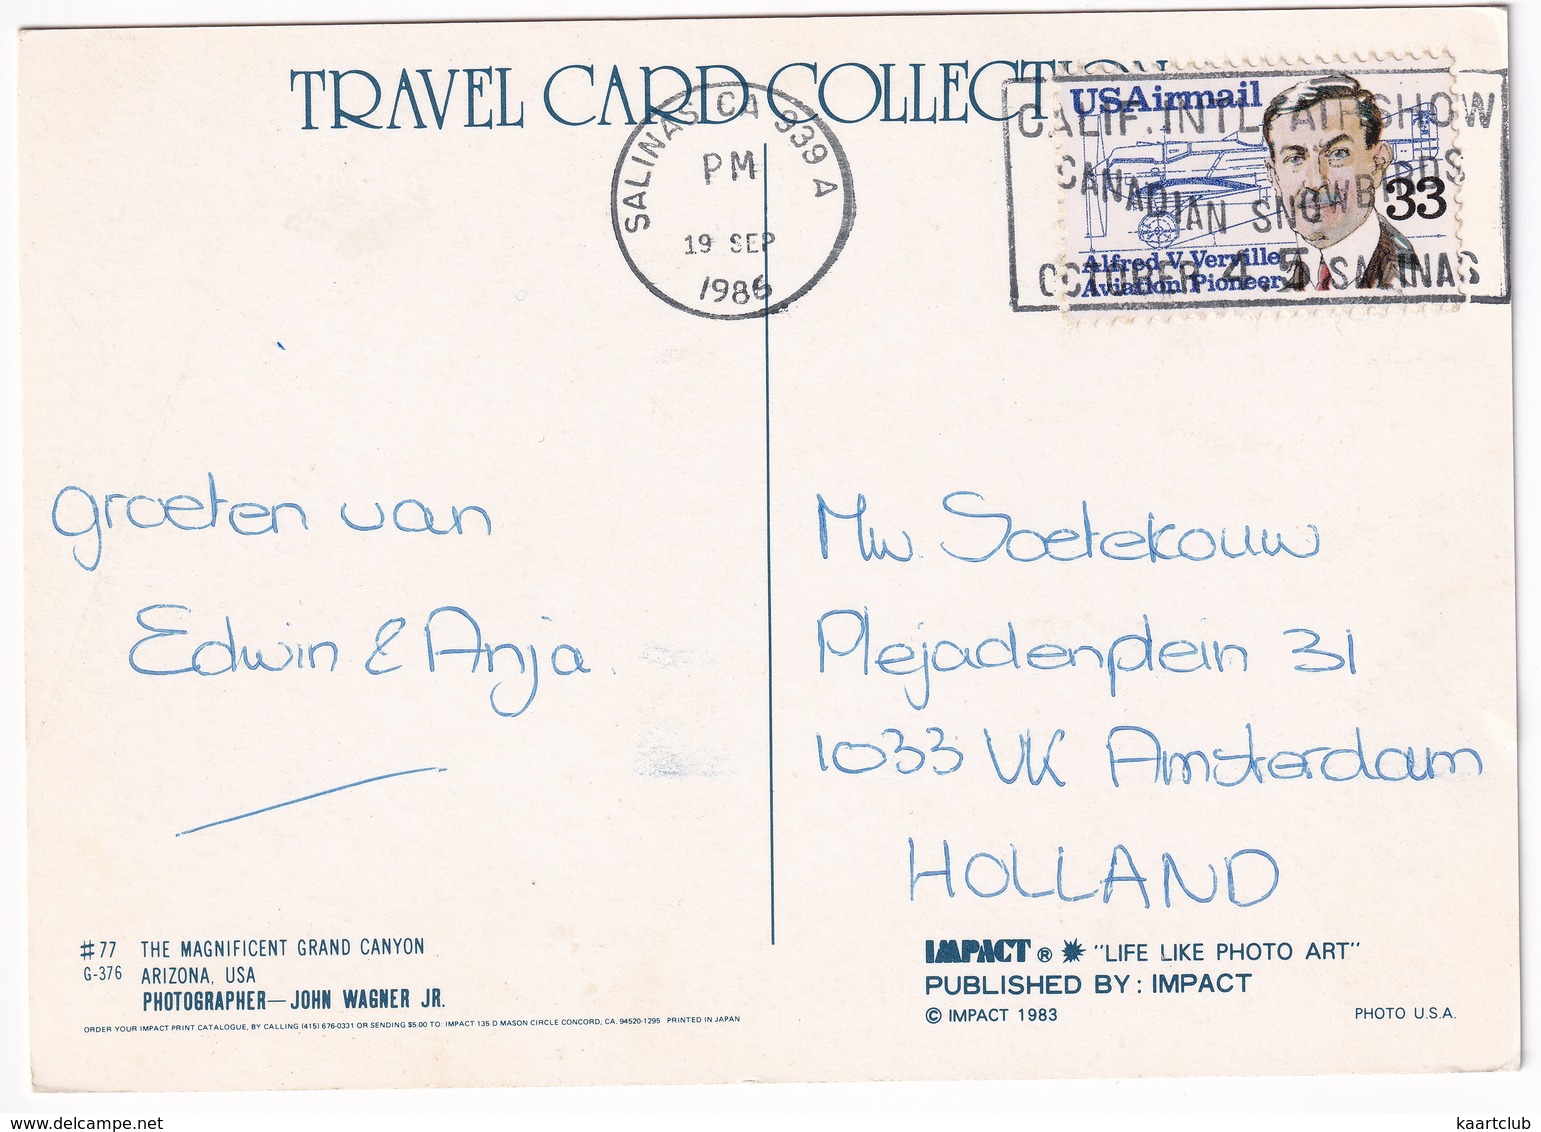 TRAVEL CARD COLLECTION
SALINAS, CA 939 A
PM
19 SEP
1986
USAirmail
33
Alfred V. Verville
Aviation Pioneer
CALIF. INTL. AIRSHOW
CANADIAN SNOWBIRDS
OCTOBER 4.5 SALINAS
groeten van
Edwin & Anja.
Mw. Soetekouw
Plejadenplein 31
1033 VK Amsterdam
HOLLAND
#77 THE MAGNIFICENT GRAND CANYON
G-376 ARIZONA, USA
PHOTOGRAPHER—JOHN WAGNER JR.
ORDER YOUR IMPACT PRINT CATALOGUE, BY CALLING (415) 676-0331 OR SENDING $5.00 TO: IMPACT 135 D MASON CIRCLE CONCORD, CA. 94520-1295 PRINTED IN JAPAN
IMPACT ® "LIFE LIKE PHOTO ART"
PUBLISHED BY: IMPACT
© IMPACT 1983
PHOTO U.S.A.
www.delcampe.net
kaartclub